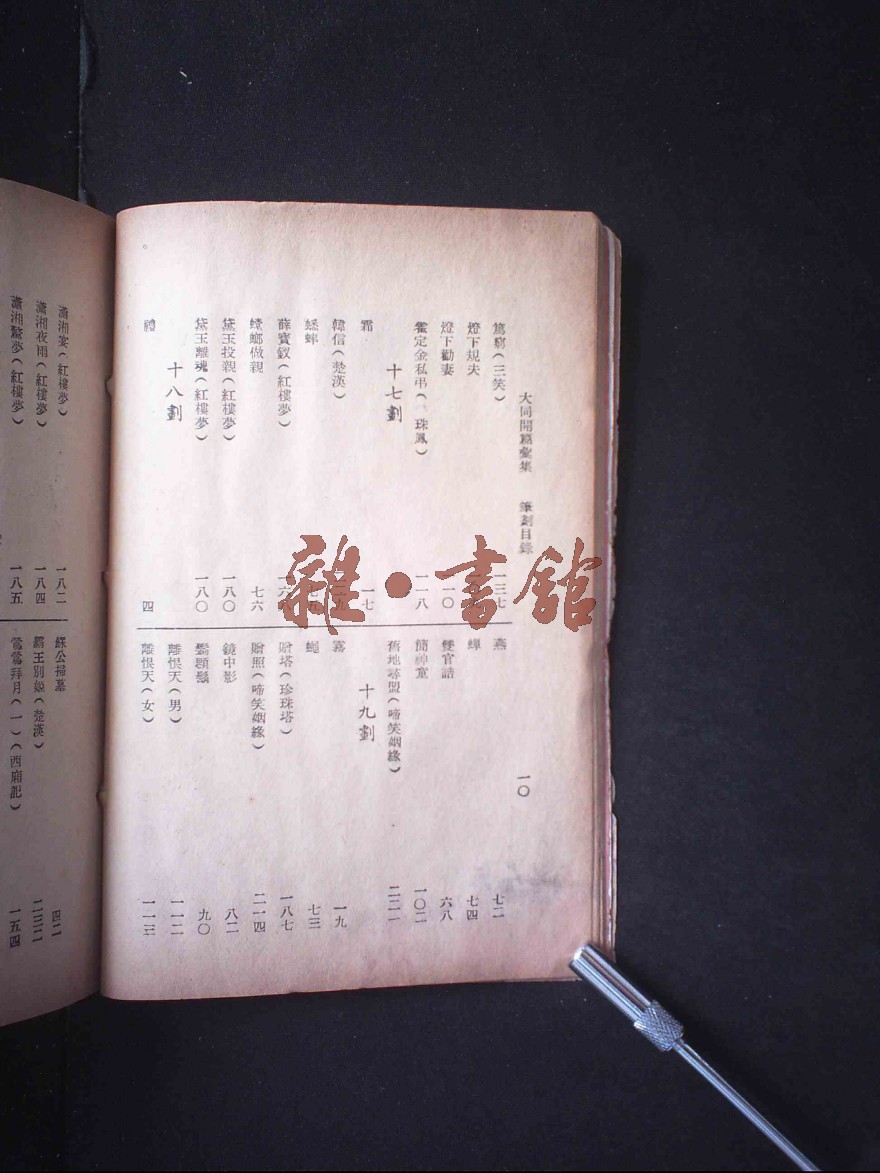 大同開篇彙集 筆劃目錄 一〇
篤窮(三笑) 一三七
燈下規夫
燈下勸妻 一一〇
霍定金私弔( 珠鳳) 一一八
十七劃
霜 一七
韓信(楚漢)
蟋蟀
薛寶釵(紅樓夢)
螳螂做親 七六
黛玉投親(紅樓夢) 一八〇
黛玉離魂(紅樓夢) 一八〇
十八劃
禮 四
燕 七二
蟬 七四
優官誥 六八
簡神童 一〇二
舊地尋盟(啼笑姻緣) 二二一
十九劃
霧 一九
蠅 七三
贈塔(珍珠塔) 一八七
贈照(啼笑姻緣) 二一四
鏡中影 八二
鬍鬚 九〇
離恨天(男) 一一二
離恨天(女) 一一三
瀟湘宴(紅樓夢) 一八二
瀟湘夜雨(紅樓夢) 一八四
瀟湘驚夢(紅樓夢) 一八五
蘇公掃墓 四二
霸王別姬(楚漢) 二三二
鶯鶯拜月(一)(西廂記) 一五四
雜·書館